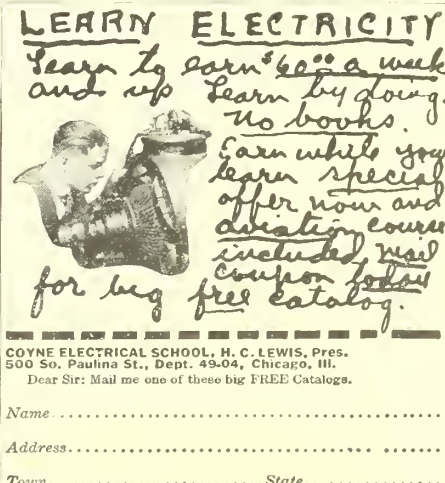 LEARN ELECTRICITY
Learn to earn $60.00 a week
and up Learn by doing.
No books.
Earn while you
learn special
offer now and
aviation course
included mail
coupon today
for big free catalog.
COYNE ELECTRICAL SCHOOL, H. C. LEWIS, Pres.
500 So. Paulina St., Dept. 49-04, Chicago, Ill.
Dear Sir: Mail me one of these big FREE Catalogs.
Name
Address
Town State